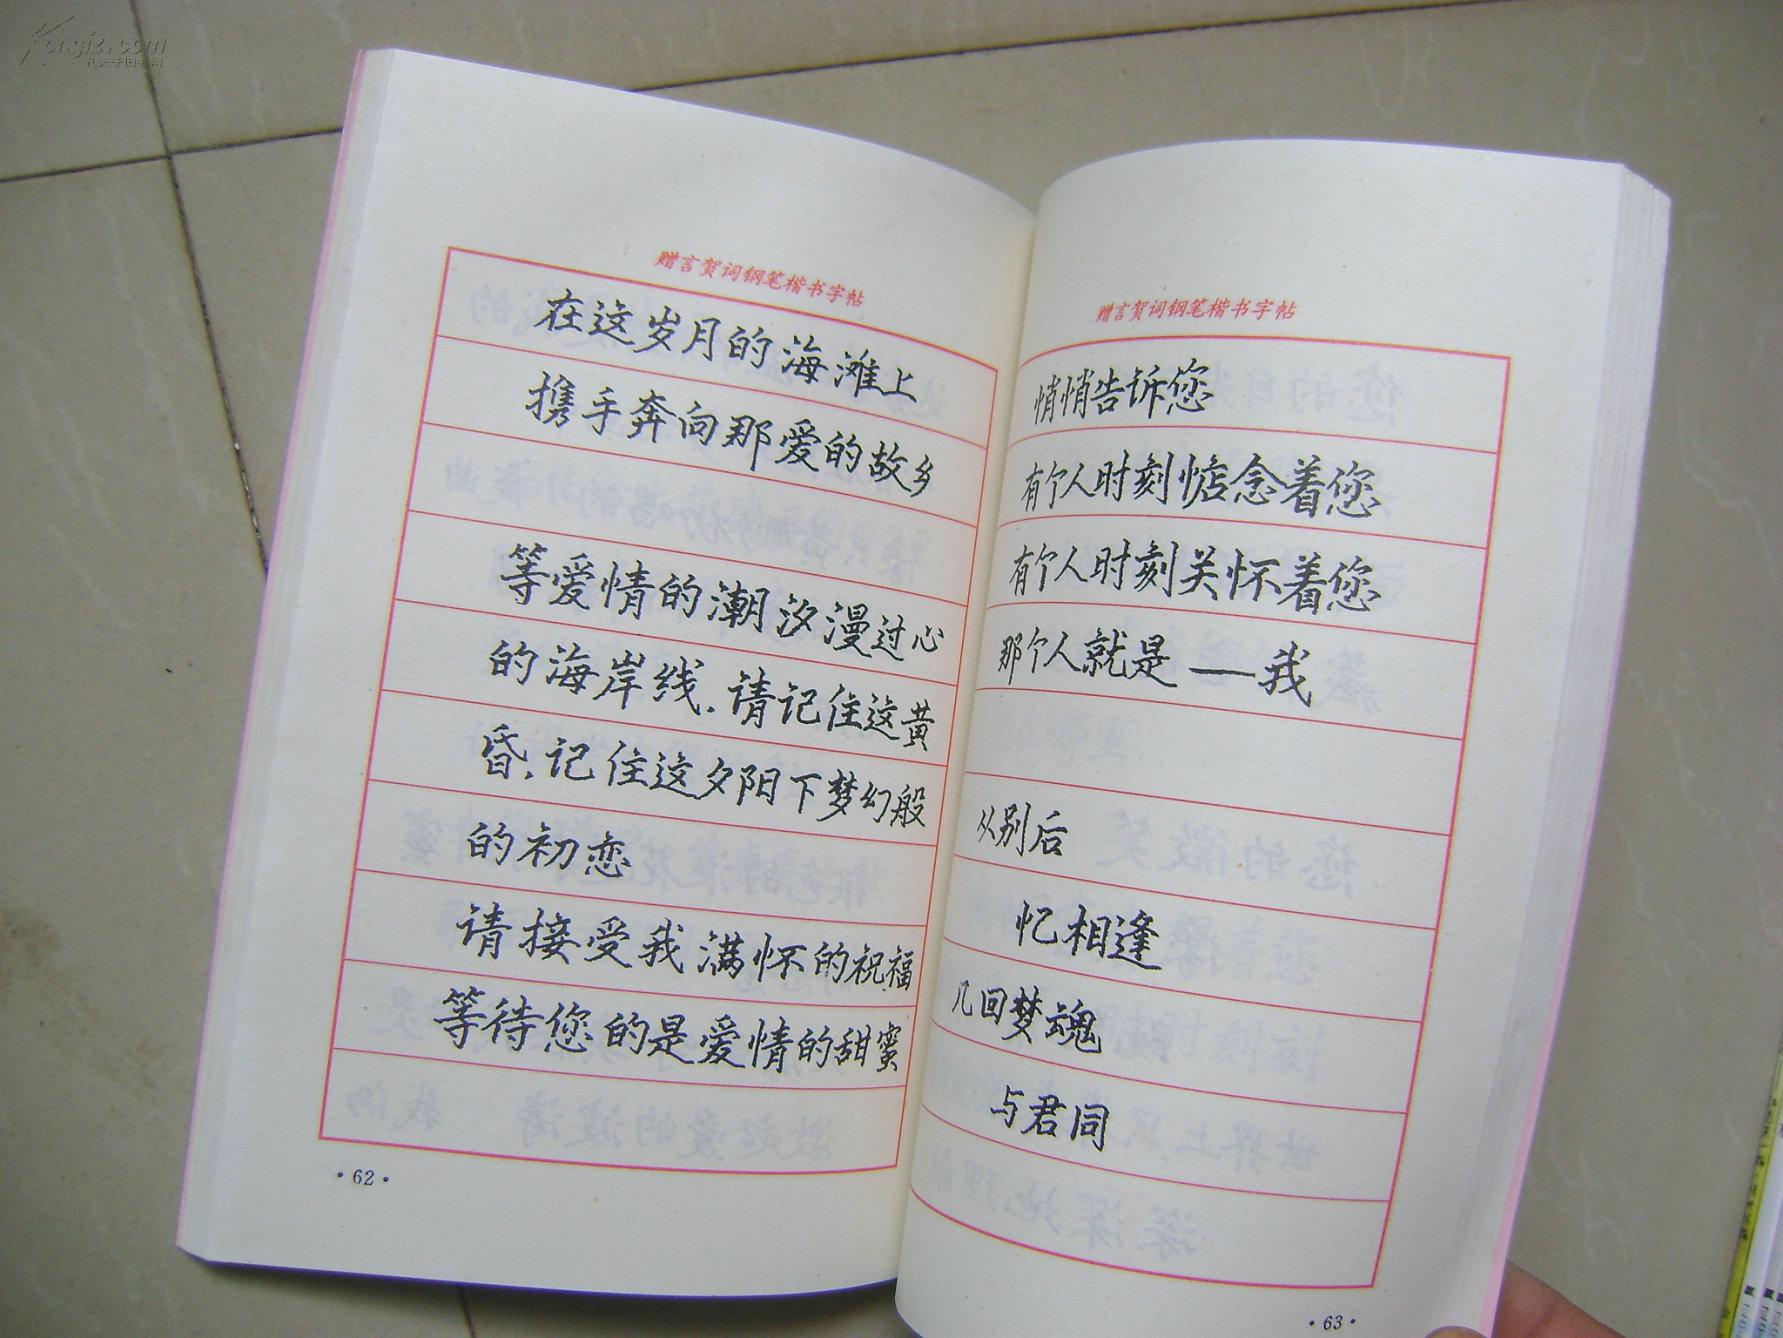 Kongfz.com
孔夫子旧书网
赠言贺词钢笔楷书字帖
在这岁月的海滩上
携手奔向那爱的故乡
等爱情的潮汐漫过心
的海岸线.请记住这黄
昏,记住这夕阳下梦幻般
的初恋
请接受我满怀的祝福
等待您的是爱情的甜蜜
·62·
赠言贺词钢笔楷书字帖
悄悄告诉您
有个人时刻惦念着您
有个人时刻关怀着您
那个人就是——我
从别后
忆相逢
几回梦魂
与君同
·63·